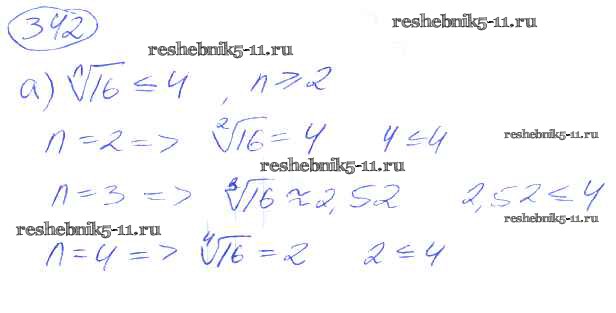 342
reshebnik5-11.ru
reshebnik5-11.ru
а) ⁿ√16 ≤ 4 , n ≥ 2
n = 2 => ²√16 = 4 4 ≤ 4
reshebnik5-11.ru
reshebnik5-11.ru
n = 3 => ³√16 ≈ 2,52 2,52 ≤ 4
reshebnik5-11.ru
reshebnik5-11.ru
n = 4 => ⁴√16 = 2 2 ≤ 4